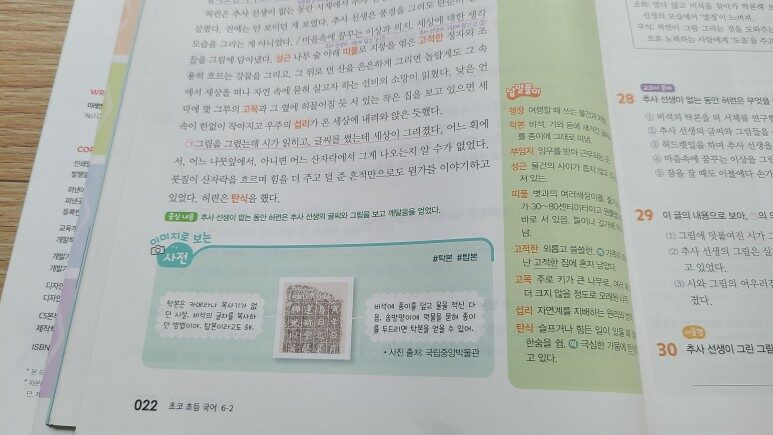 허련은 추사 선생이 없는 동안 서재에서 추사
살폈다. 전에는 안 보이던 게 보였다. 추사 선생은 풍경을 그려도
모습을 그리는 게 아니었다. / 마음속에 꿈꾸는 이상과 의지, 세상에 대한 생각
들을 그림에 담아냈다. 성근 나무 숲 아래 띠풀로 지붕을 엮은 고적한 정자와 조
용히 흐르는 강물을 그리고, 그 뒤로 먼 산을 은은하게 그리면 놀랍게도 그 속
에서 세상을 떠나 자연 속에 묻혀 살고자 하는 선비의 소망이 읽혔다. 낮은 언
덕에 몇 그루의 고목과 그 옆에 허물어질 듯 서 있는 작은 집을 보고 있으면 세
속이 한없이 작아지고 우주의 섭리가 온 세상에 내려와 앉은 듯했다.
㉠그림을 그렸는데 시가 읽히고, 글씨를 썼는데 세상이 그려졌다. 어느 획에
서, 어느 나뭇잎에서, 아니면 어느 산자락에서 그게 나오는지 알 수가 없었다.
붓질이 산자락을 흐르며 힘을 더 주고 덜 준 흔적만으로도 뭔가를 이야기하고
있었다. 허련은 탄식을 했다.
중심 내용 추사 선생이 없는 동안 허련은 추사 선생의 글씨와 그림을 보고 깨달음을 얻었다.
이미지로 보는
사전
#탁본 #탑본
탁본은 카메라나 복사기가 없
던 시절, 비석의 글자를 복사하
던 방법이야. 탑본이라고도 해.
비석에 종이를 덮고 물을 적신 다
음, 솜방망이에 먹물을 묻혀 종이
를 두드리면 탁본을 얻을 수 있어.
• 사진 출처: 국립중앙박물관
022 초코 초등 국어 6-2
낱말풀이
행장 여행할 때 쓰는 물건과 차림.
탁본 비석, 기와 등에 새겨진
를 종이에 그대로 떠냄.
부임지 임무를 받아 근무하는 곳.
성근 물건의 사이가 촘지 않고
져 있는.
띠풀 볏과의 여러해살이풀. 줄기
가 30~80센티미터이고 원뿔형
바로 서 있음. 들이나 길가에
남.
고적한 외롭고 쓸쓸한. 예 가족이
난 고적한 집에 혼자 남았다.
고목 주로 키가 큰 나무로, 여러 해
더 크지 않을 정도로 오래된 나무.
섭리 자연계를 지배하는 원리와 법칙.
탄식 슬프거나 힘든 일이 있을 때
한숨을 쉼. 예 극심한 가뭄에
고 있다.
28 추사 선생이 없는 동안 허련은 무엇을
① 비석의 탁본을 떠 서체를 연구
② 추사 선생의 글씨와 그림들을
④ 마음속에 꿈꾸는 이상을 그림
⑤ 잠을 잘 때도 이불에다 손가
29 이 글의 내용으로 보아, ㉠의
(1) 그림에 덧붙여진 시가 그
(2) 추사 선생의 그림은 실
고 있었다.
(3) 시와 그림의 어우러짐
졌다.
서술형
30 추사 선생이 그린 그림